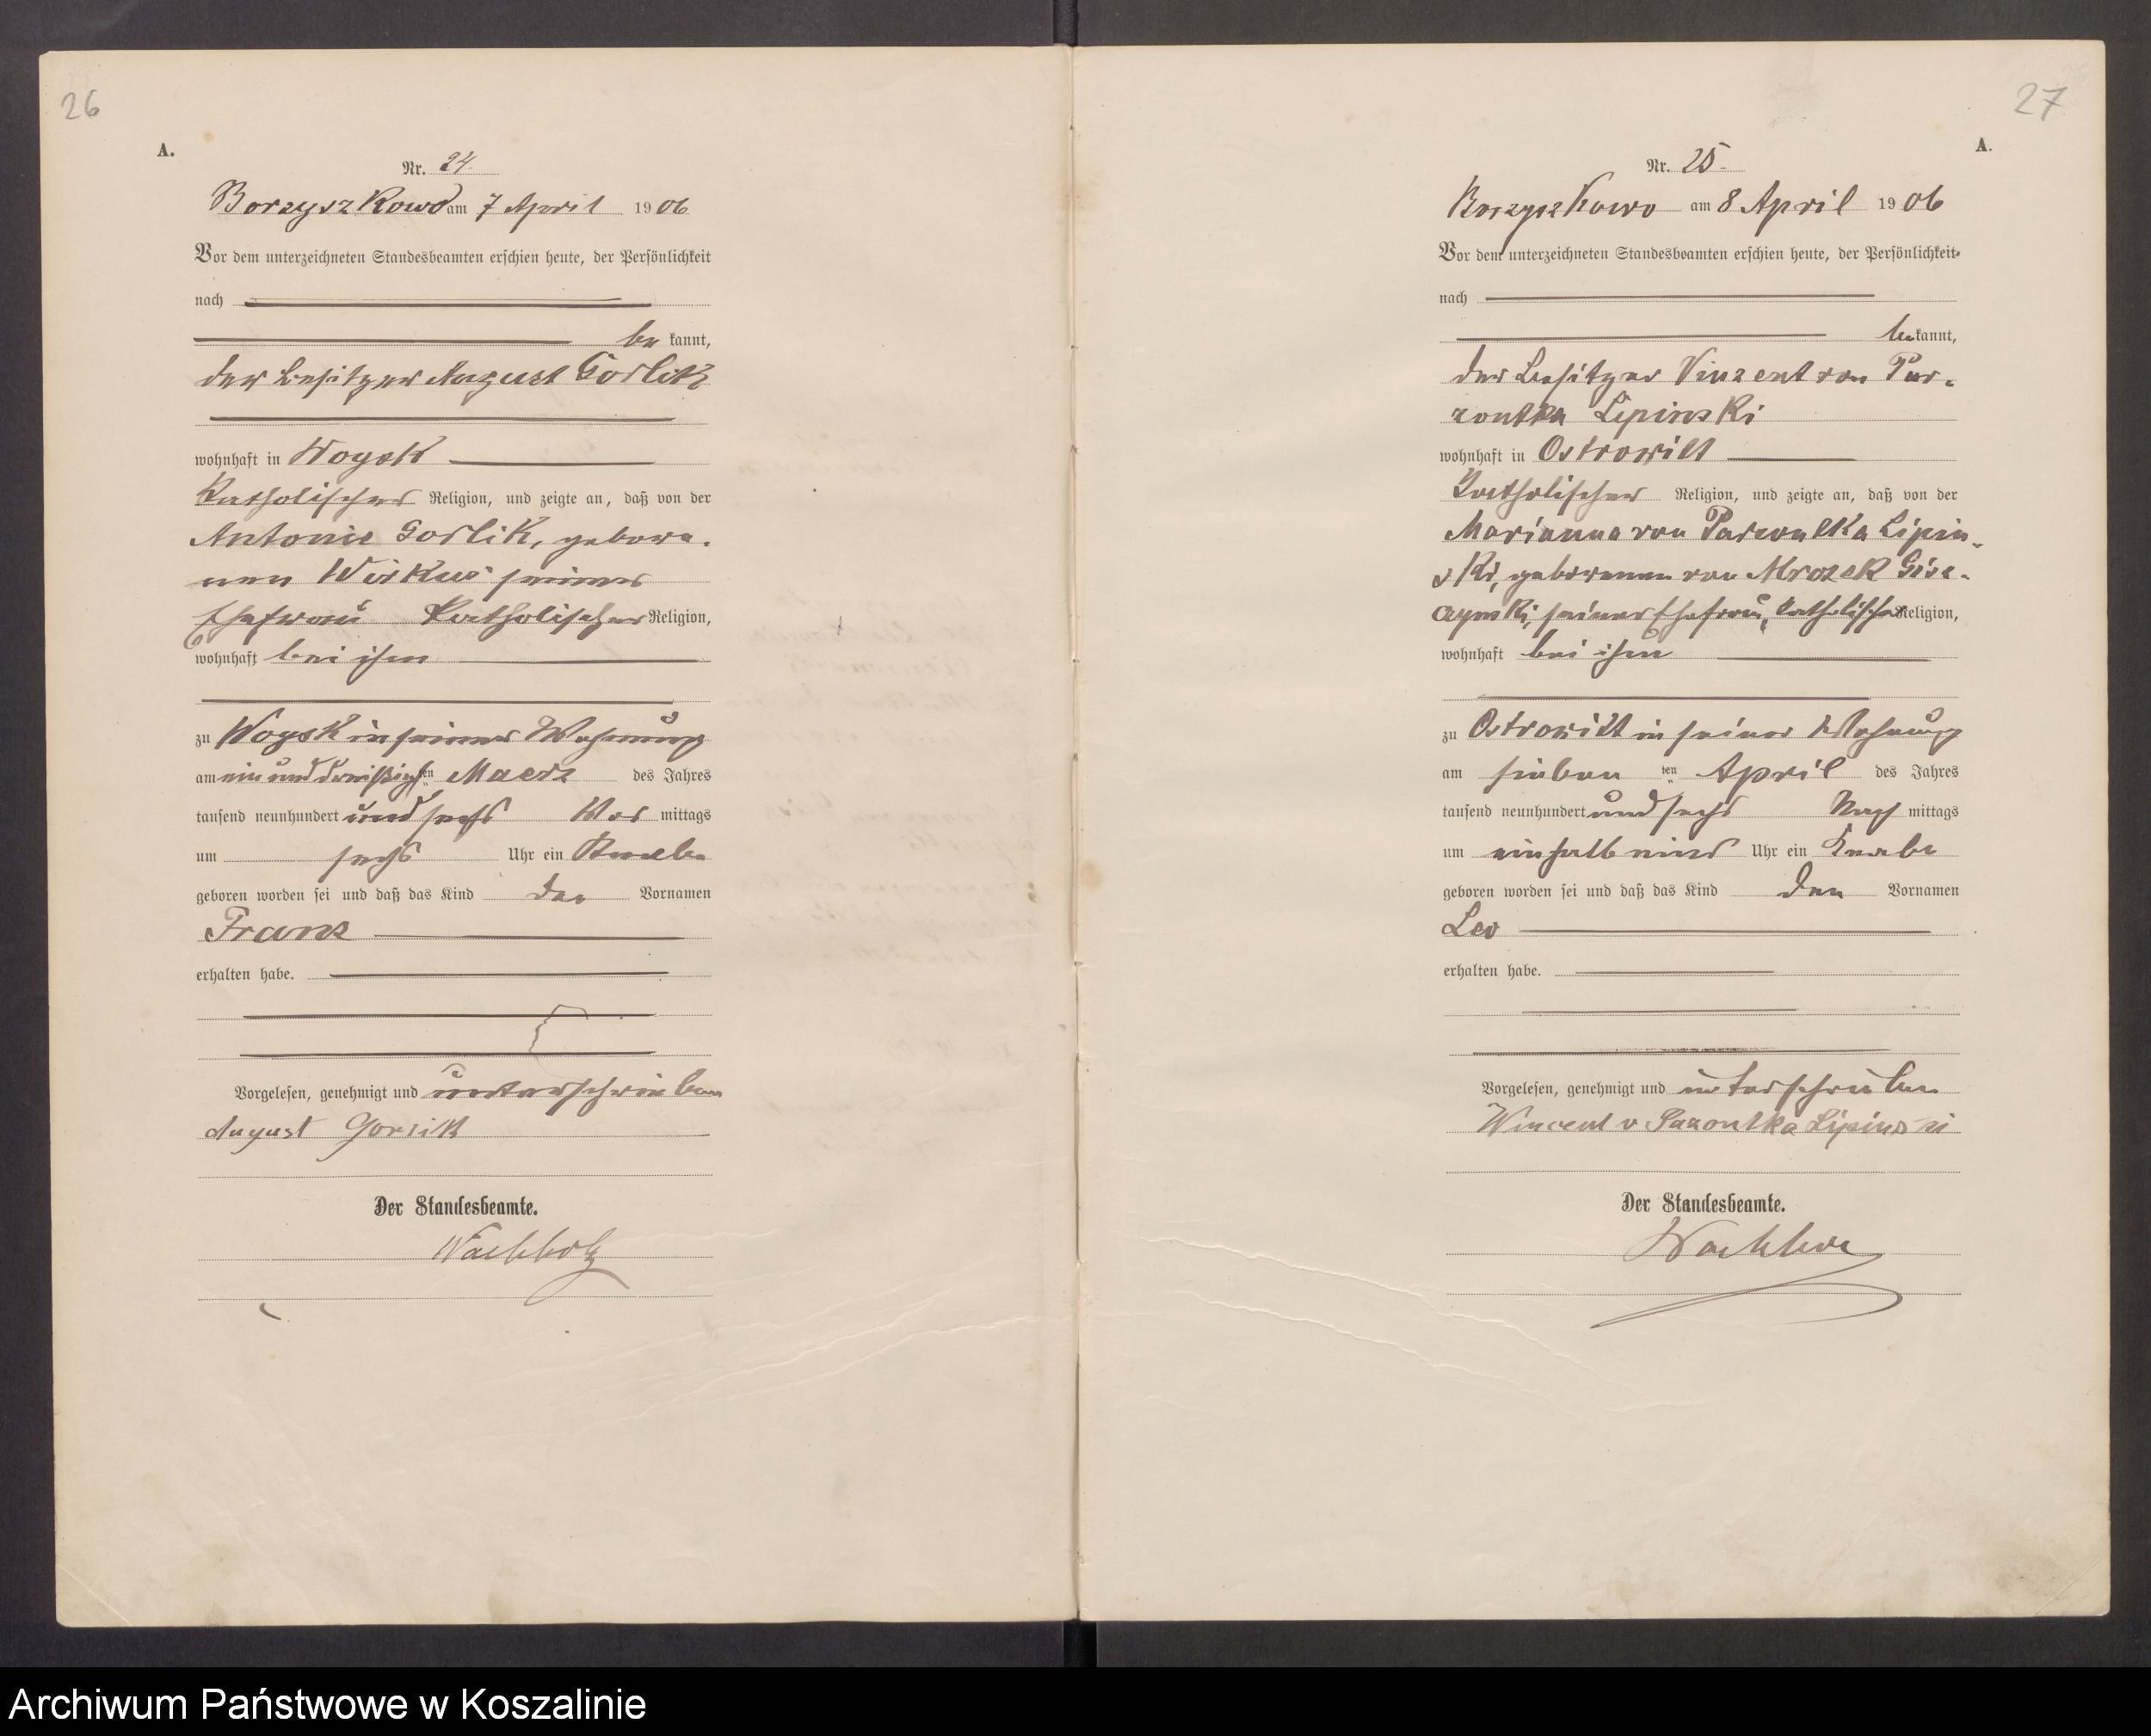 26
A.
Nr. 24.
Borzyszkowo am 7 April 1906
Vor dem unterzeichneten Standesbeamten erschien heute, der Persönlichkeit
nach
be kannt,
der Besitzer August Gorlik
wohnhaft in Woysk
katholischer Religion, und zeigte an, daß von der
Antonie Gorlik, gebore-
nen Wirkus seiner
Ehefrau katholischer Religion,
wohnhaft bei ihm
zu Woysk in seiner Wohnung
am ein und dreißigsten Maerz des Jahres
tausend neunhundert und sechs Vor mittags
um sechs Uhr ein Knabe
geboren worden sei und daß das Kind den Vornamen
Franz
erhalten habe.
Vorgelesen, genehmigt und unterschrieben
August Gorlik
Der Standesbeamte.
Wachholz
27
A.
Nr. 25.
Borzyszkowo am 8 April 1906
Vor dem unterzeichneten Standesbeamten erschien heute, der Persönlichkeit
nach
be kannt,
der Besitzer Vinzent von
Lipinski
wohnhaft in Ostrowitt
katholischer Religion, und zeigte an, daß von der
Marianna von Lipin-
ski, geborenen von Mrozek
seiner Ehefrau, katholischer Religion,
wohnhaft bei ihm
zu Ostrowitt in seiner Wohnung
am sieben ten April des Jahres
tausend neunhundert und sechs Nach mittags
um einhalb eins Uhr ein Knabe
geboren worden sei und daß das Kind den Vornamen
Leo
erhalten habe.
Vorgelesen, genehmigt und unterschrieben
Wincent v Lipinski
Der Standesbeamte.
Wachholz
Archiwum Państwowe w Koszalinie